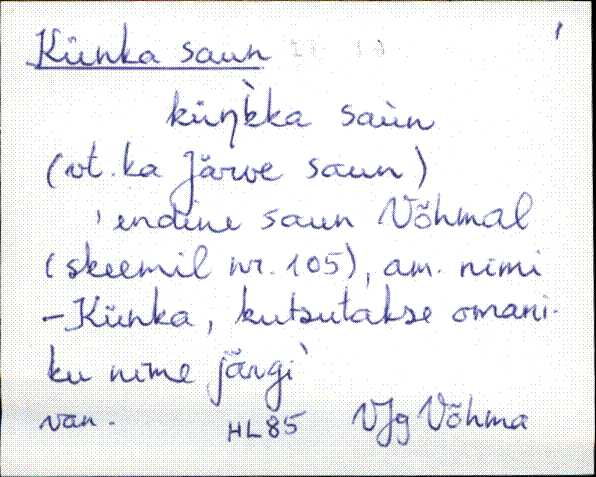 Künka saun
küŋ̀kka saùn
(vt. ka Järve saun)
'endine saun Võhmal
(skeemil nr. 105), am. nimi
-Künka, kutsutakse omani-
ku nime järgi'
van. HL85 VJg Võhma